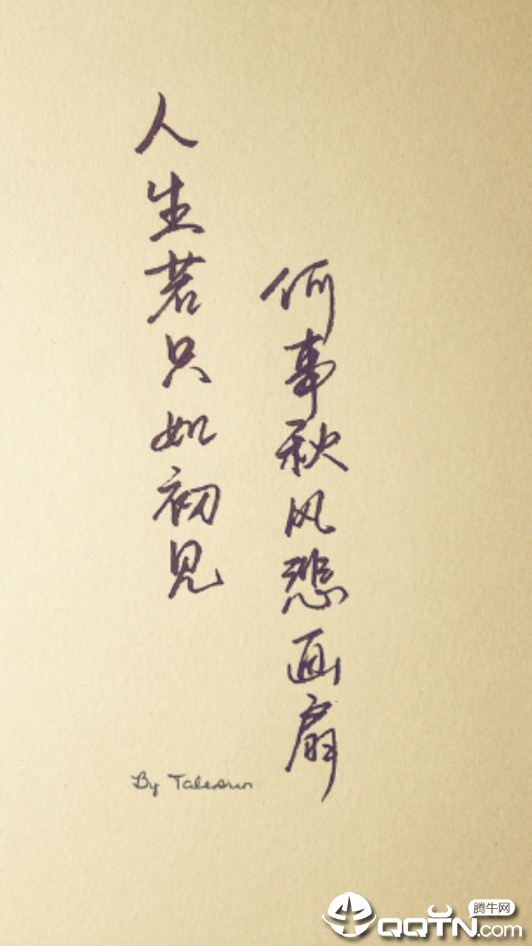 人生若只如初见
何事秋风悲画扇
By Talesun
腾牛网
QQTN.com